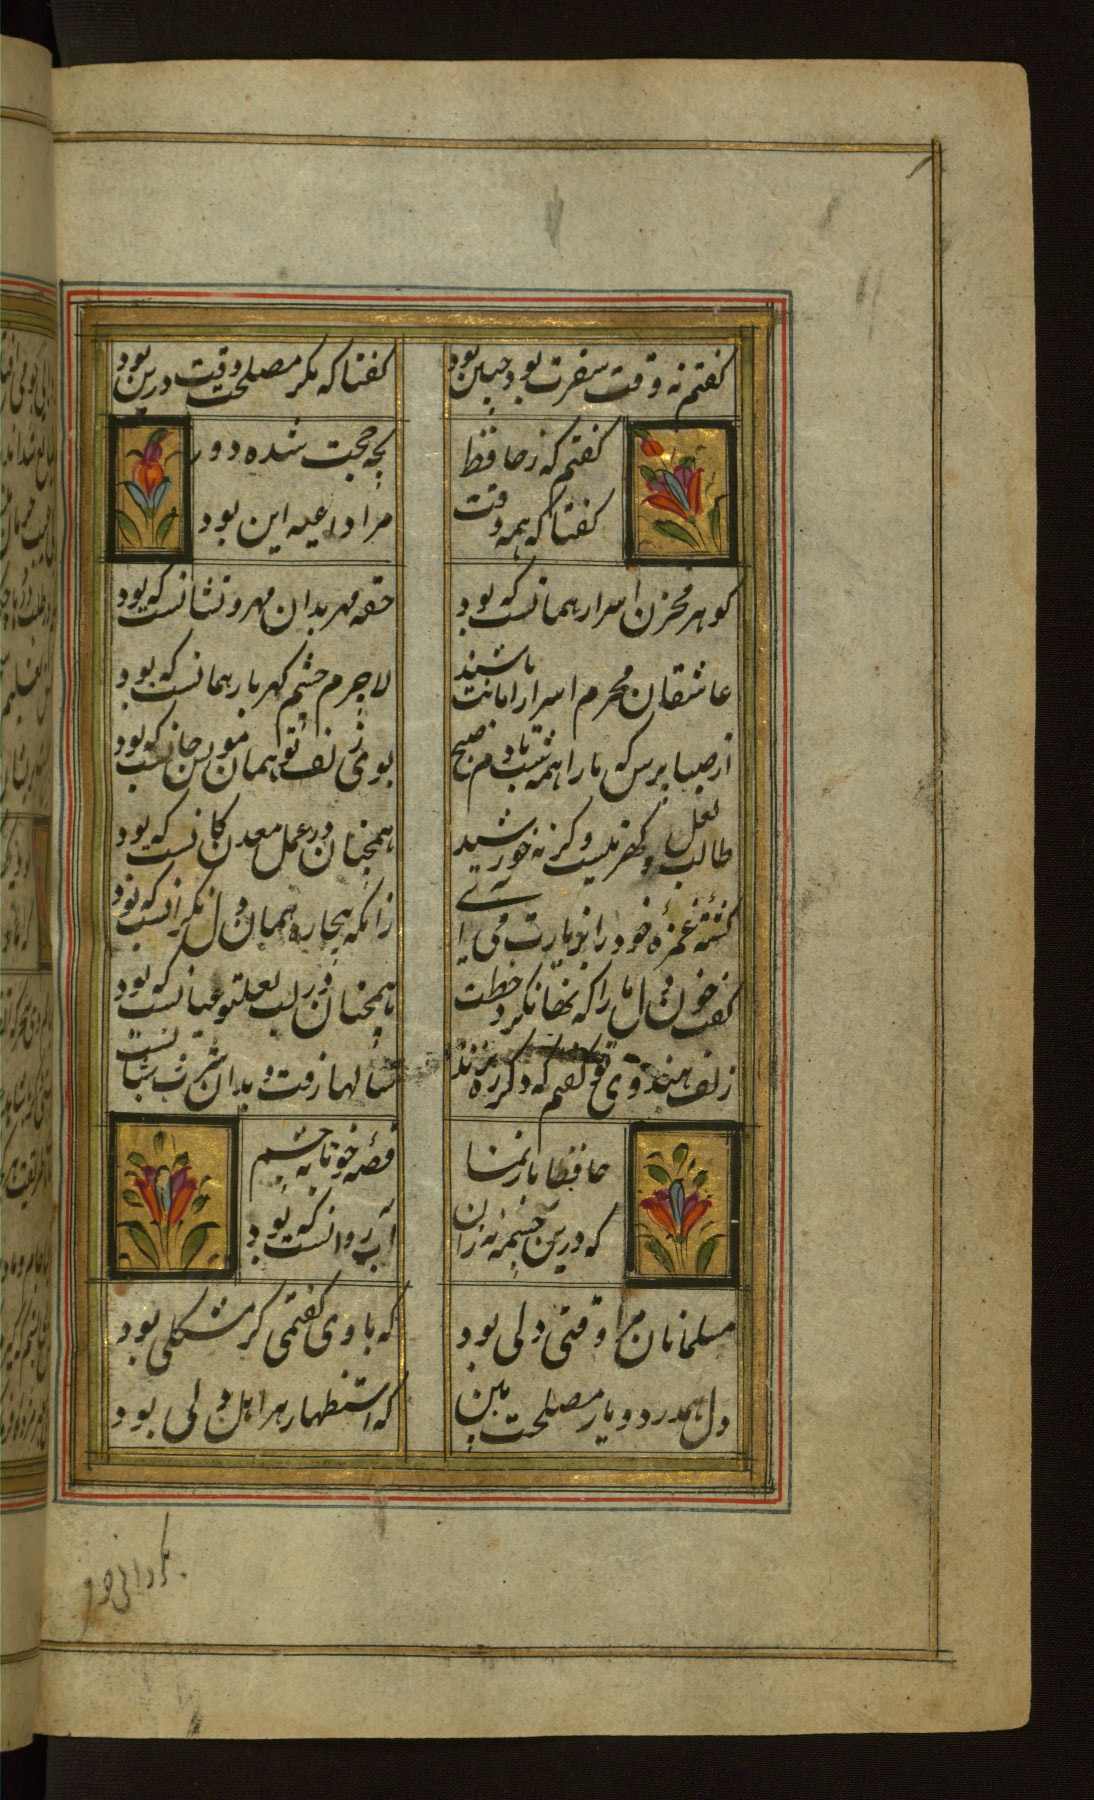 کفتم نه وقت سفرت بود چنین بود
کفتا که مکر مصلحت وقت درین بود
کفتم که ز حافظ
بچه حجت شده دور
کفتا که همه وقت
مرا داعیه این بود
کوهر مخزن اسرار همانست که بود
حقه مهر بدان مهر و نشانست که بود
عاشقان محرم اسرار امانت باشند
لاجرم چشم کهر بار همانست که بود
از صبا پرس که ما را همه شب تا دم صبح
بوی زلف تو همان مونس جانست که بود
طالب لعل و کهر نیست وکر نه خورشید
همچنان در عمل معدن کانست که بود
کشتهٔ غمزهٔ خود را بزیارت می آ
زانکه بیچاره همان دل نکرانست که بود
خون دل ما را که نهان کرد خطت
همچنان در لب لعل تو عیانست که بود
زلف هندوی تو کفتم که دکر ره نزند
سالها رفت و بدان سانست
حافظا باز نما
قصهٔ خونابه چشم
که درین چشمه نه زان
آب روانست که بود
مسلمانان مرا وقتی دلی بود
که با وی کفتمی کر مشکلی بود
دل همدرد و یار مصلحت بین
که استظهار هر اهل دلی بود